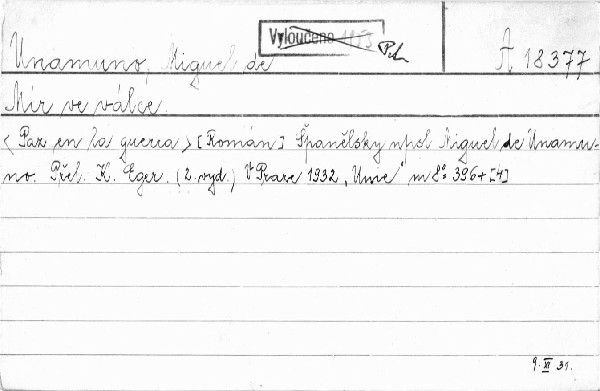 Vyloučeno 1953
Unamuno, Miguel de
A 18377
Mír ve válce.
< Paz en la guerra > [Román] Španělsky npsl Miguel de Unamu-
no. Přel. K. Eger. (2. vyd.) V Praze 1932 „Ume“ m 8° 396+[4]
9. XI 31.